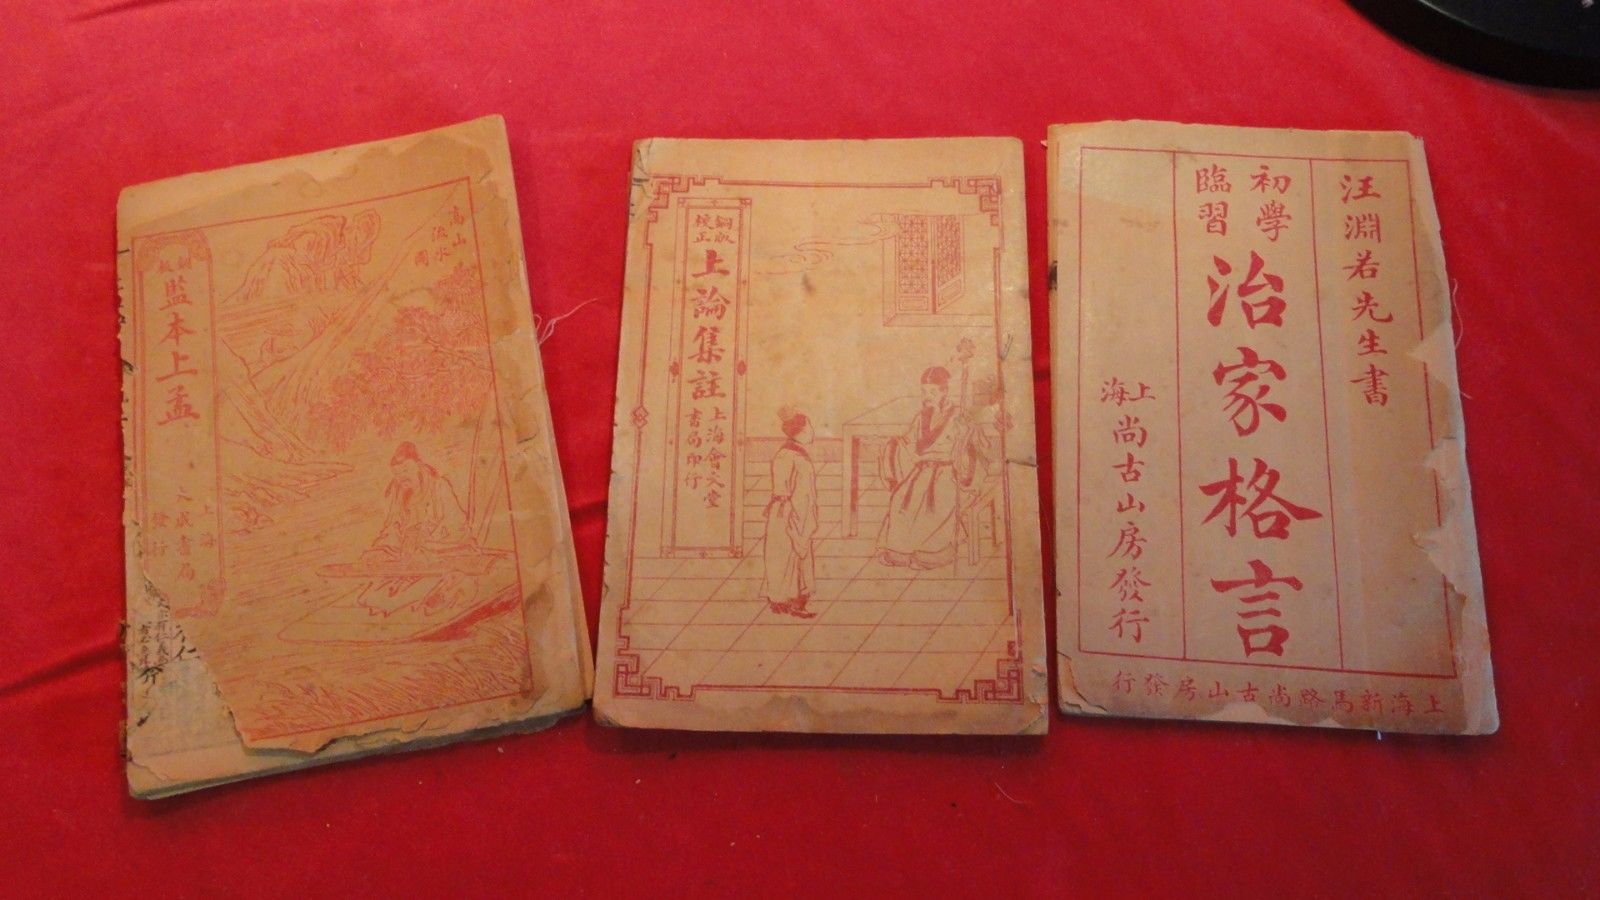 高山
流水
圖
銅板
監本上孟
上海
文成書局
發行
不仁
銅版
校正
上論集註
上海會文堂
書局印行
汪淵若先生書
初學
臨習
治家格言
上海
尚古山房發行
上海新馬路尚古山房發行